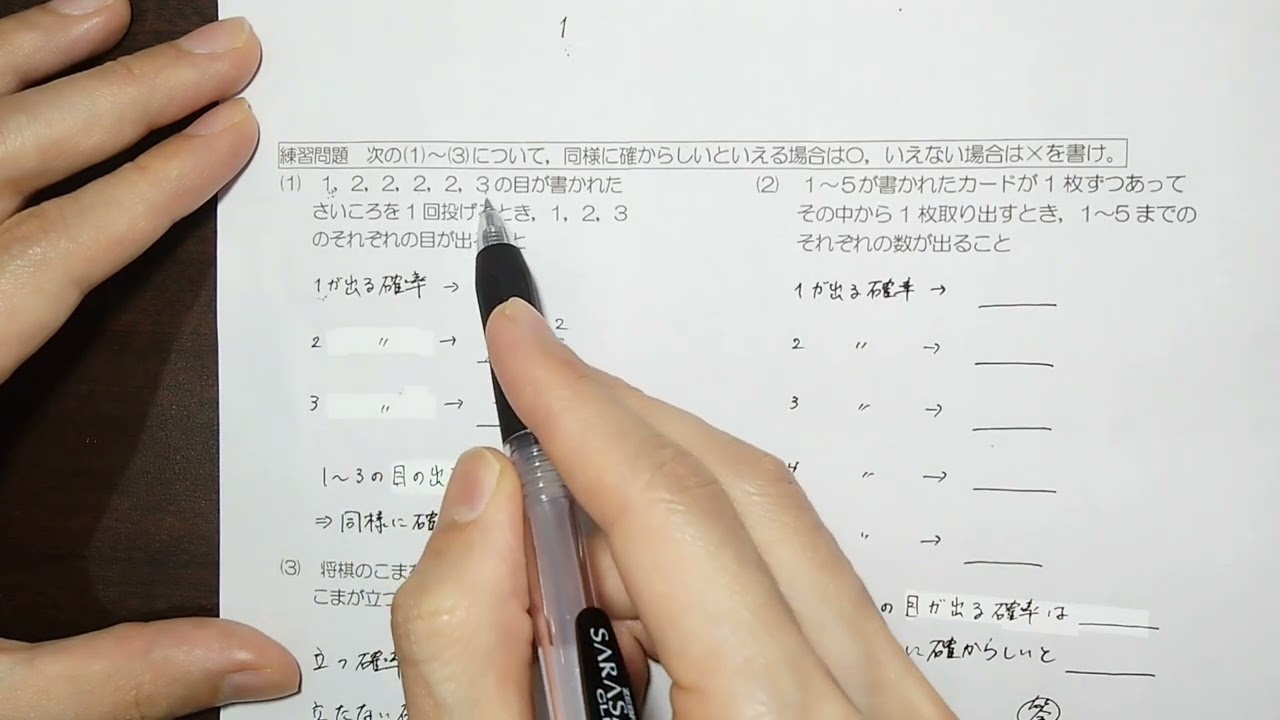 1
練習問題 次の(1)～(3)について，同様に確からしいといえる場合は○，いえない場合は×を書け。
(1) 1，2，2，2，2，3の目が書かれた
さいころを1回投げ とき，1，2，3
のそれぞれの目が出 と
1が出る確率 →
2 〃 →
2
3 〃 →
1～3の目の出
⇒ 同様に確
(3) 将棋のこま
こまが立つ
立つ確率
立たない
(2) 1～5が書かれたカードが1枚ずつあって
その中から1枚取り出すとき，1～5までの
それぞれの数が出ること
1が出る確率 →
2 〃 →
3 〃 →
〃 →
〃 →
の目が出る確率は
に確からしいと
答
SARASA